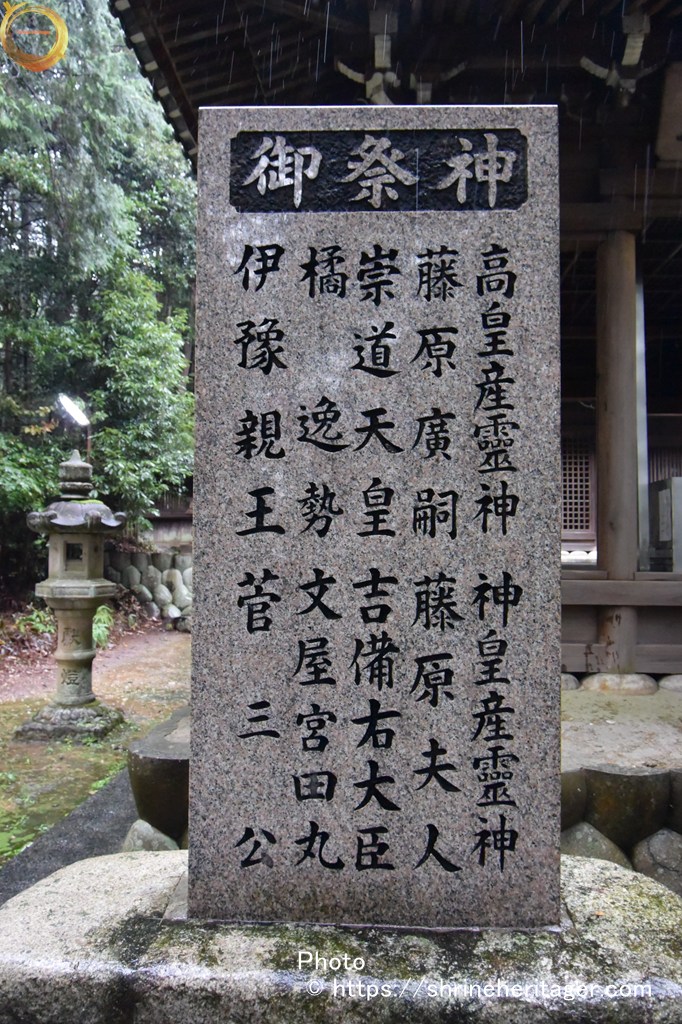 神祭御
高皇産靈神 神皇産靈神
藤原廣嗣 藤原夫人
崇道天皇 吉備右大臣
橘逸勢 文屋宮田丸
伊豫親王 菅三公
Photo
© https://shrineheritager.com